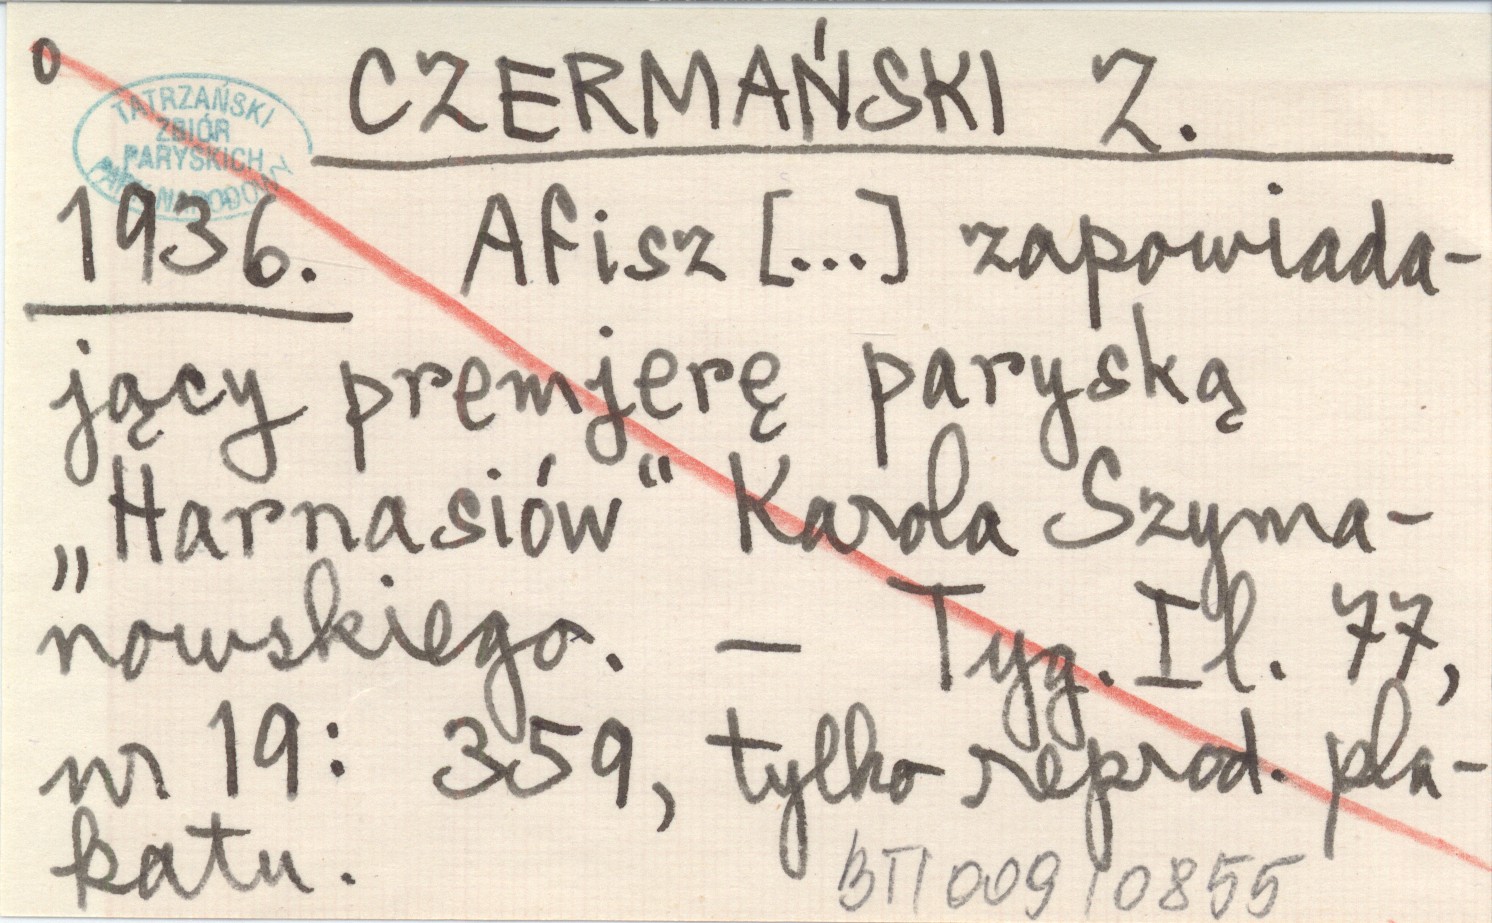 o
CZERMAŃSKI Z.
TATRZAŃSKI
ZBIÓR
PARYSKICH
NARODOW
1936. Afisz [...] zapowiada-
jący premjerę paryską
„Harnasiów“ Karola Szyma-
nowskiego. — Tyg. Il. 77,
nr 19: 359, tylko reprod. pla-
katu.
BT/009/0855